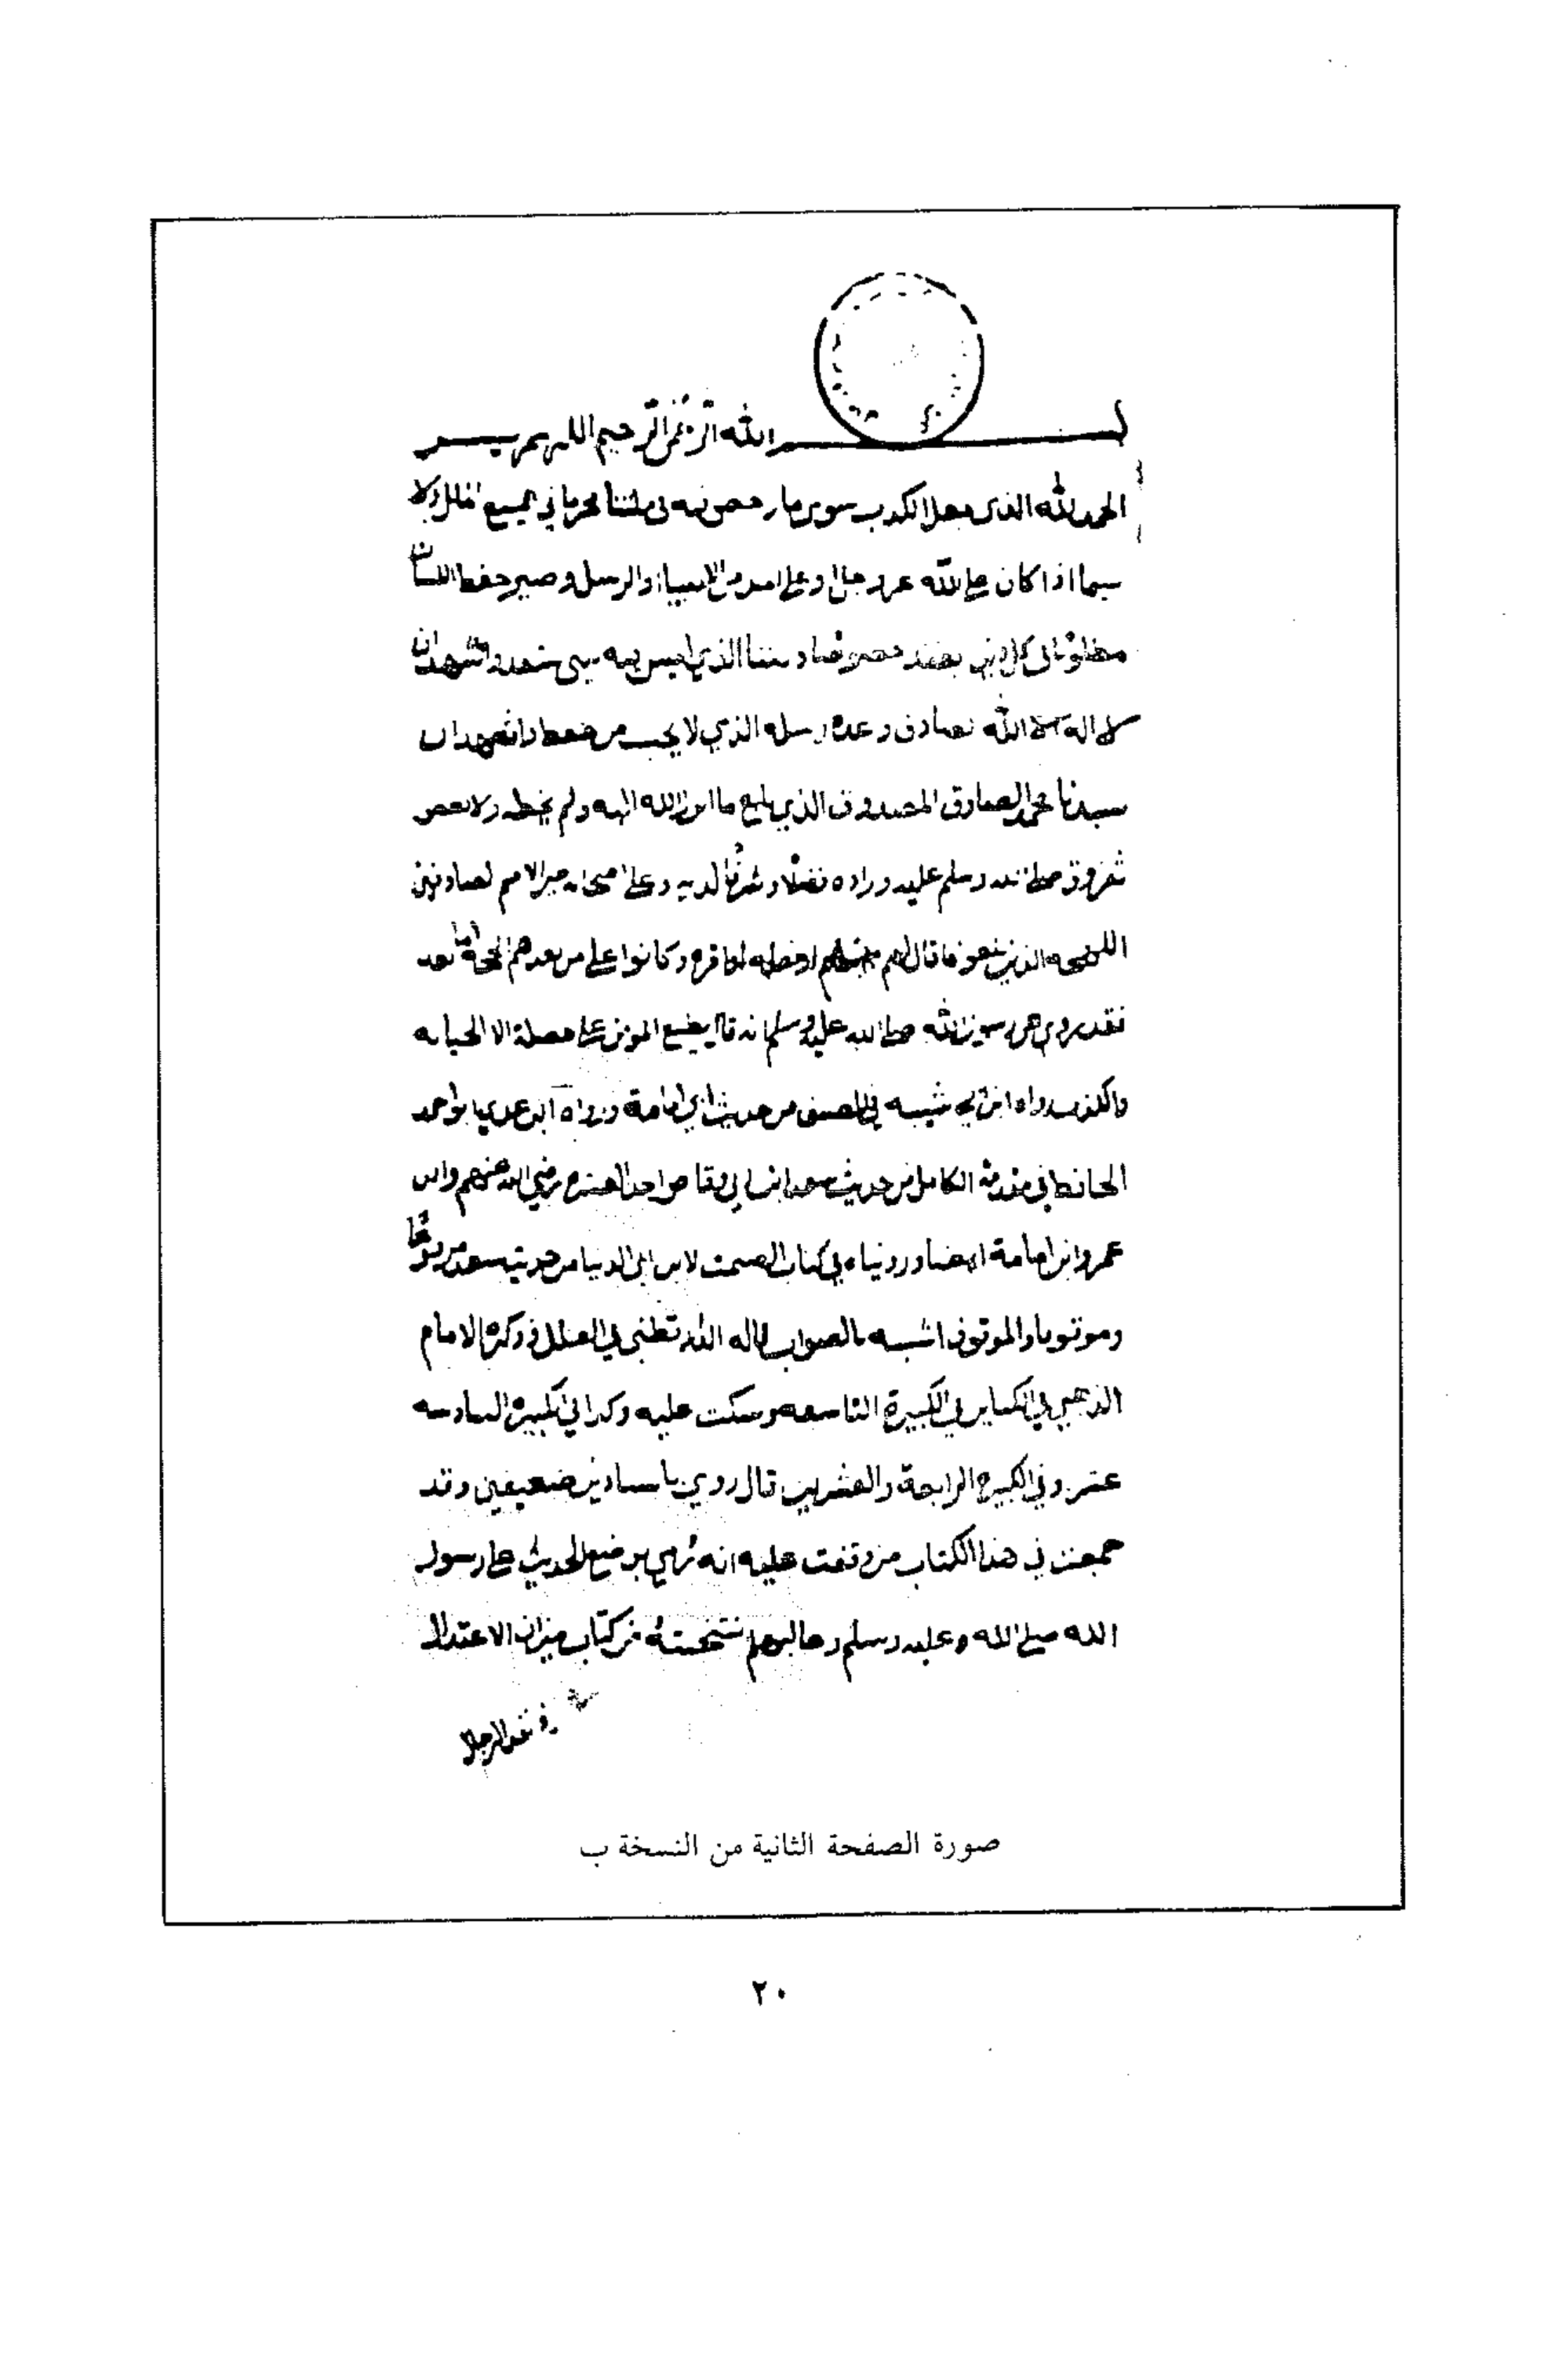 بسم الله الرحمن الرحيم اللهم يسر
الحمد لله الذى جعل الكذب سوى ما رخص فيه فى ملتنا محرما في جميع الملل ولا
سيما اذا كان على الله عز وجل وعلى احد من الانبياء والرسل وصير حفظ اللسان
مطلوبا فى كل دين خصوصا ديننا الذي ليس فيه واشهد ان
لا اله الا الله الصادق وعده رسله الذي لا يجب واشهد ان
سيدنا محمد الصادق المصدوق الذي بلغ ما انزل الله اليه ولم يخط ولا
صلى الله وسلم عليه وزاده فضلا وشرفا لديه وعلى اصحابه خير الامم الصادقين
اللهجه الذين فما قال لهم وكانوا على من بعدهم الحجة اما بعد
فقد روي عن رسول الله صلى الله عليه وسلم انه قال يطبع المؤمن على خصلة الا الخيانه
والكذب رواه ابن ابي شيبه في المصنف من حديث ابي امامة ورواه ابن عدي ابو احمد
الحافظ في مقدمة الكامل من حديث سعد ابن ابي وقاص احد العشرة رضي الله عنهم وابن
عمر وابي امامة ايضا وروينا في كتاب الصمت لابن ابي الدنيا من حديث سعد مرفوعا
وموقوفا والموقوف اشبه بالصواب قاله الدارقطني في العلل وذكره الامام
الذهبي في الكباير في الكبيرة التاسعه وسكت عليه وكذا في الكبيرة السادسه
عشر وفي الكبيرة الرابعة والعشرين قال روي باسنادين ضعيفين وقد
جمعت في هذا الكتاب من وقفت عليه انه رمي بوضع الحديث على رسول
الله صلى الله وعليه وسلم وغالبهم من كتاب ميزان الاعتدال
في نقد الرجال
صورة الصفحة الثانية من النسخة ب
٢٠